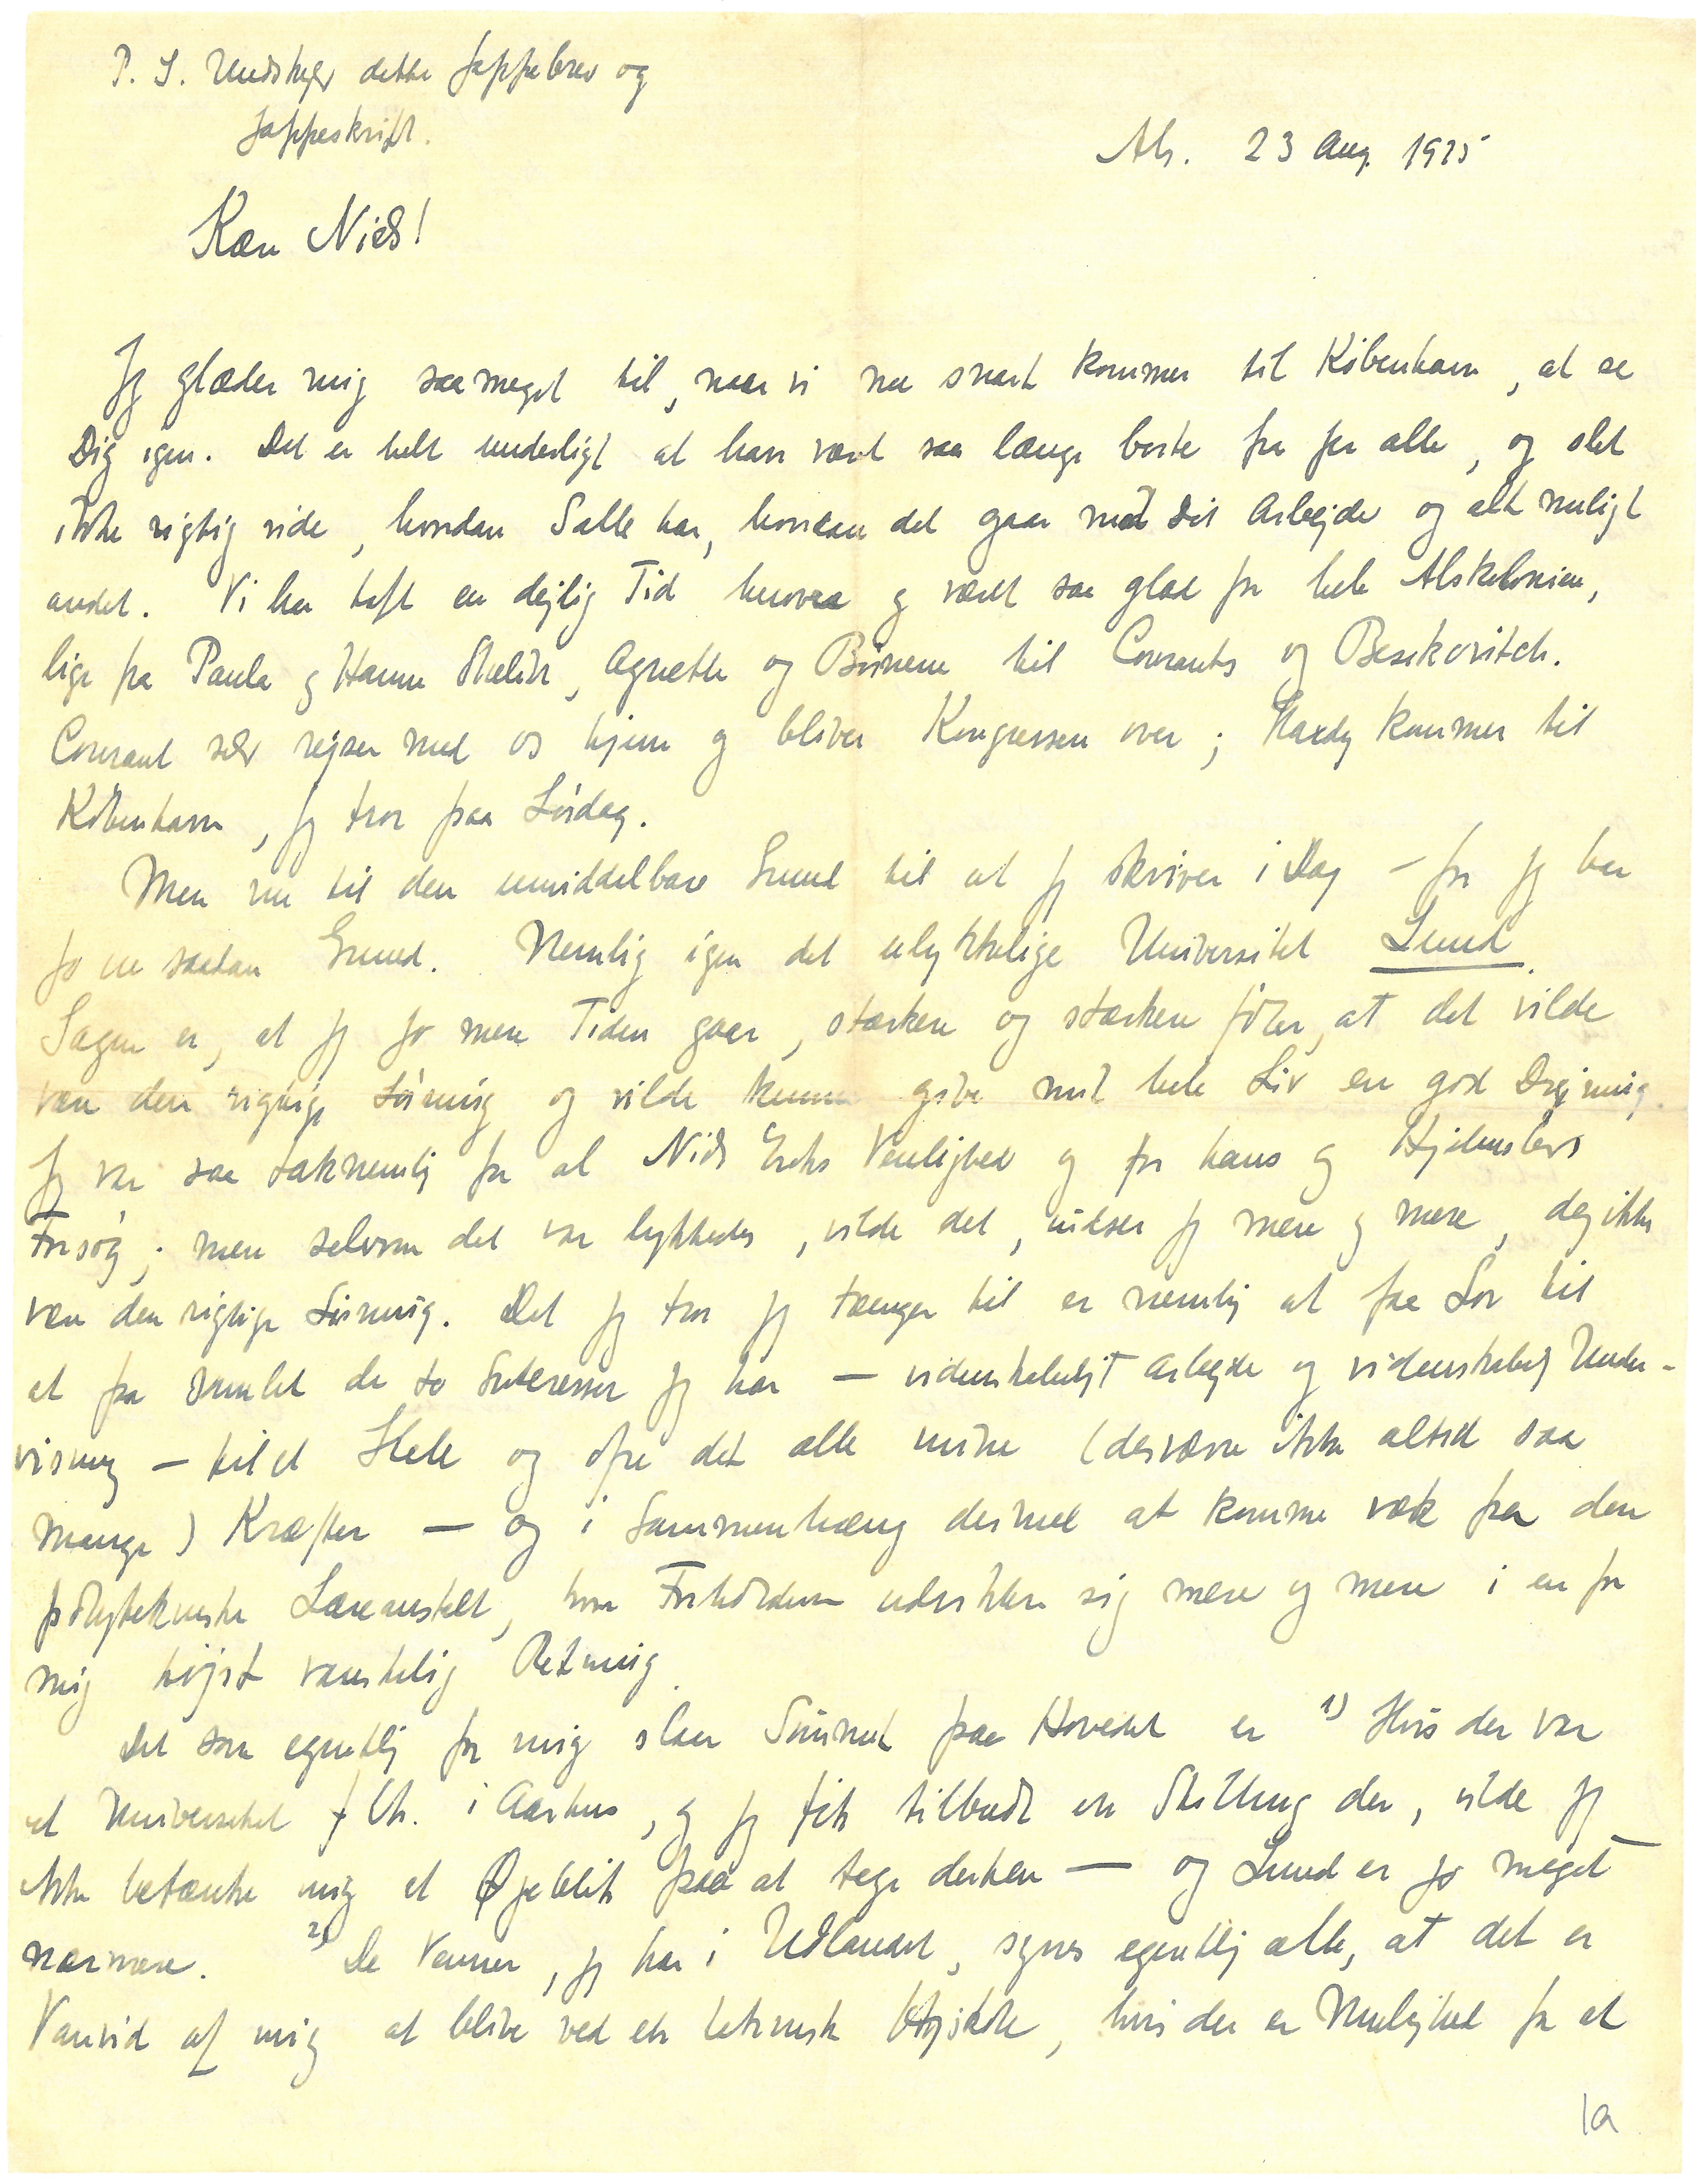 P. S. Undskyld dette Jappebrev og
Jappeskrift.
Als. 23 Aug. 1925
Kære Niels!
Jeg glæder mig saameget til, naar vi nu snart kommer til København, at se
Dig igen. Det er helt underligt at have været saa længe borte fra jer alle, og slet
ikke rigtig vide, hvordan I alle har, hvordan det gaar med dit Arbejde og alt muligt
andet. Vi har haft en dejlig Tid herovre og været saa glad for hele Alskolonien,
lige fra Paula og Hanne, Agnethe og Børnene til Courants og Besikovitch.
Courant selv rejser med os hjem og bliver Kongressen over; Hardy kommer til
København, jeg tror paa Lørdag.
Men nu til den umiddelbare Grund til at jeg skriver i Dag – for jeg har
jo en saadan Grund. Nemlig igen det ulykkelige Universitet Lund.
Sagen er, at jeg jo mere Tiden gaar, stærkere og stærkere føler, at det vilde
være den rigtige Løsning og vilde kunne give mit hele Liv en god Drejning.
Jeg var saa taknemlig for al Niels Eriks Venlighed og for hans og Hjelmslevs
Forsøg; men selvom det var lykkedes, vilde det, indser jeg mere og mere, dog ikke
være den rigtige Løsning. Det jeg tror jeg trænger til er nemlig at faa Lov til
at faa samlet de to Interesser jeg har – videnskabeligt Arbejde og videnskabelig Under-
visning – til et Hele og ofre det alle mine (desværre ikke altid saa
mange) Kræfter – og i Sammenhæng dermed at komme væk fra den
polytekniske Læreanstalt, hvor Forholdene udvikler sig mere og mere i en for
mig højst vanskelig Retning.
Det som egentlig for mig slaar Sømmet paa Hovedet er 1) Hvis der var
et Universitet f. Eks. i Aarhus, og jeg fik tilbudt en Stilling der, vilde jeg
ikke betænke mig et Øjeblik paa at tage derhen – og Lund er jo meget
nærmere. 2) De Venner, jeg har i Udlandet, synes egentlig alle, at det er
Vanvid af mig at blive ved en teknisk Højskole, hvis der er Mulighed for at
1a